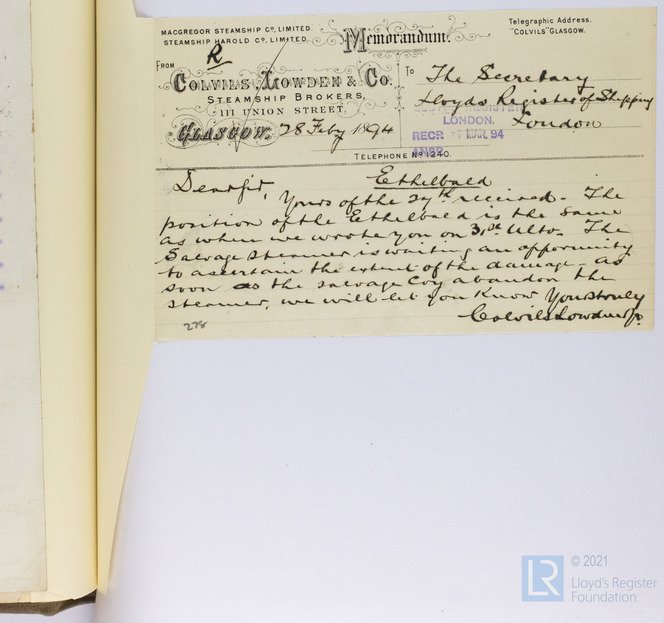 MACGREGOR STEAMSHIP Co, LIMITED.
STEAMSHIP HAROLD Co, LIMITED.
Memorandum.
Telegraphic Address.
"COLVILS" GLASGOW.
R
FROM
COLVILS, LOWDEN & Co.
STEAMSHIP BROKERS,
111 UNION STREET,
GLASGOW, 28 Feby 1894
To The Secretary
Lloyds Register of Shipping
London
LONDON.
RECD 1 MAR 94
ANSD
TELEPHONE No 1240.
Ethelbald
Dear Sir,
Yours of the 27th received - The
position of the Ethelbald is the same
as when we wrote you on 31st Ulto. The
Salvage steamer is waiting an opportunity
to ascertain the extent of the damage - as
soon as the salvage Coy abandon the
steamer, we will let you know Yours truly
Colvils Lowden &Co.
278
© 2021
LR
Lloyd's Register
Foundation